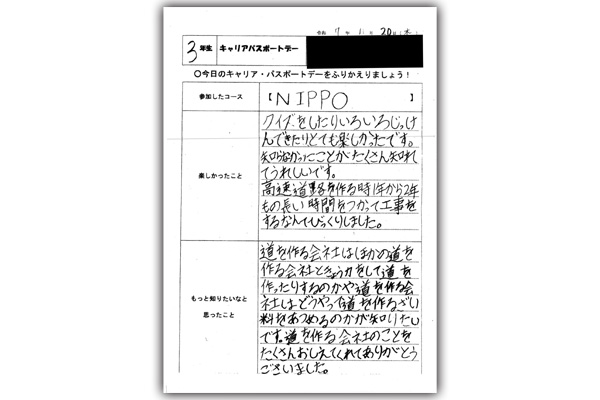 令和 7年 11月 20日(木)
3年生 キャリアパスポートデー
○今日のキャリア・パスポートデーをふりかえりましょう！
参加したコース 【NIPPO】
楽しかったこと
クイズをしたりいろいろじっけ
んできたりとても楽しかったです。
知らなかったことがたくさん知れ
てうれしいです。
高速道路を作る時1年から2年
もの長い時間をつかって工事を
するなんてびっくりしました。
もっと知りたいなと
思ったこと
道を作る会社はほかの道を
作る会社ときょう力をして道を
作ったりするのかや道を作る会
社は、どうやって道を作るざい
料をあつめるのかが知りたい
です。道を作る会社のことを
たくさんおしえてくれてありがとう
ございました。